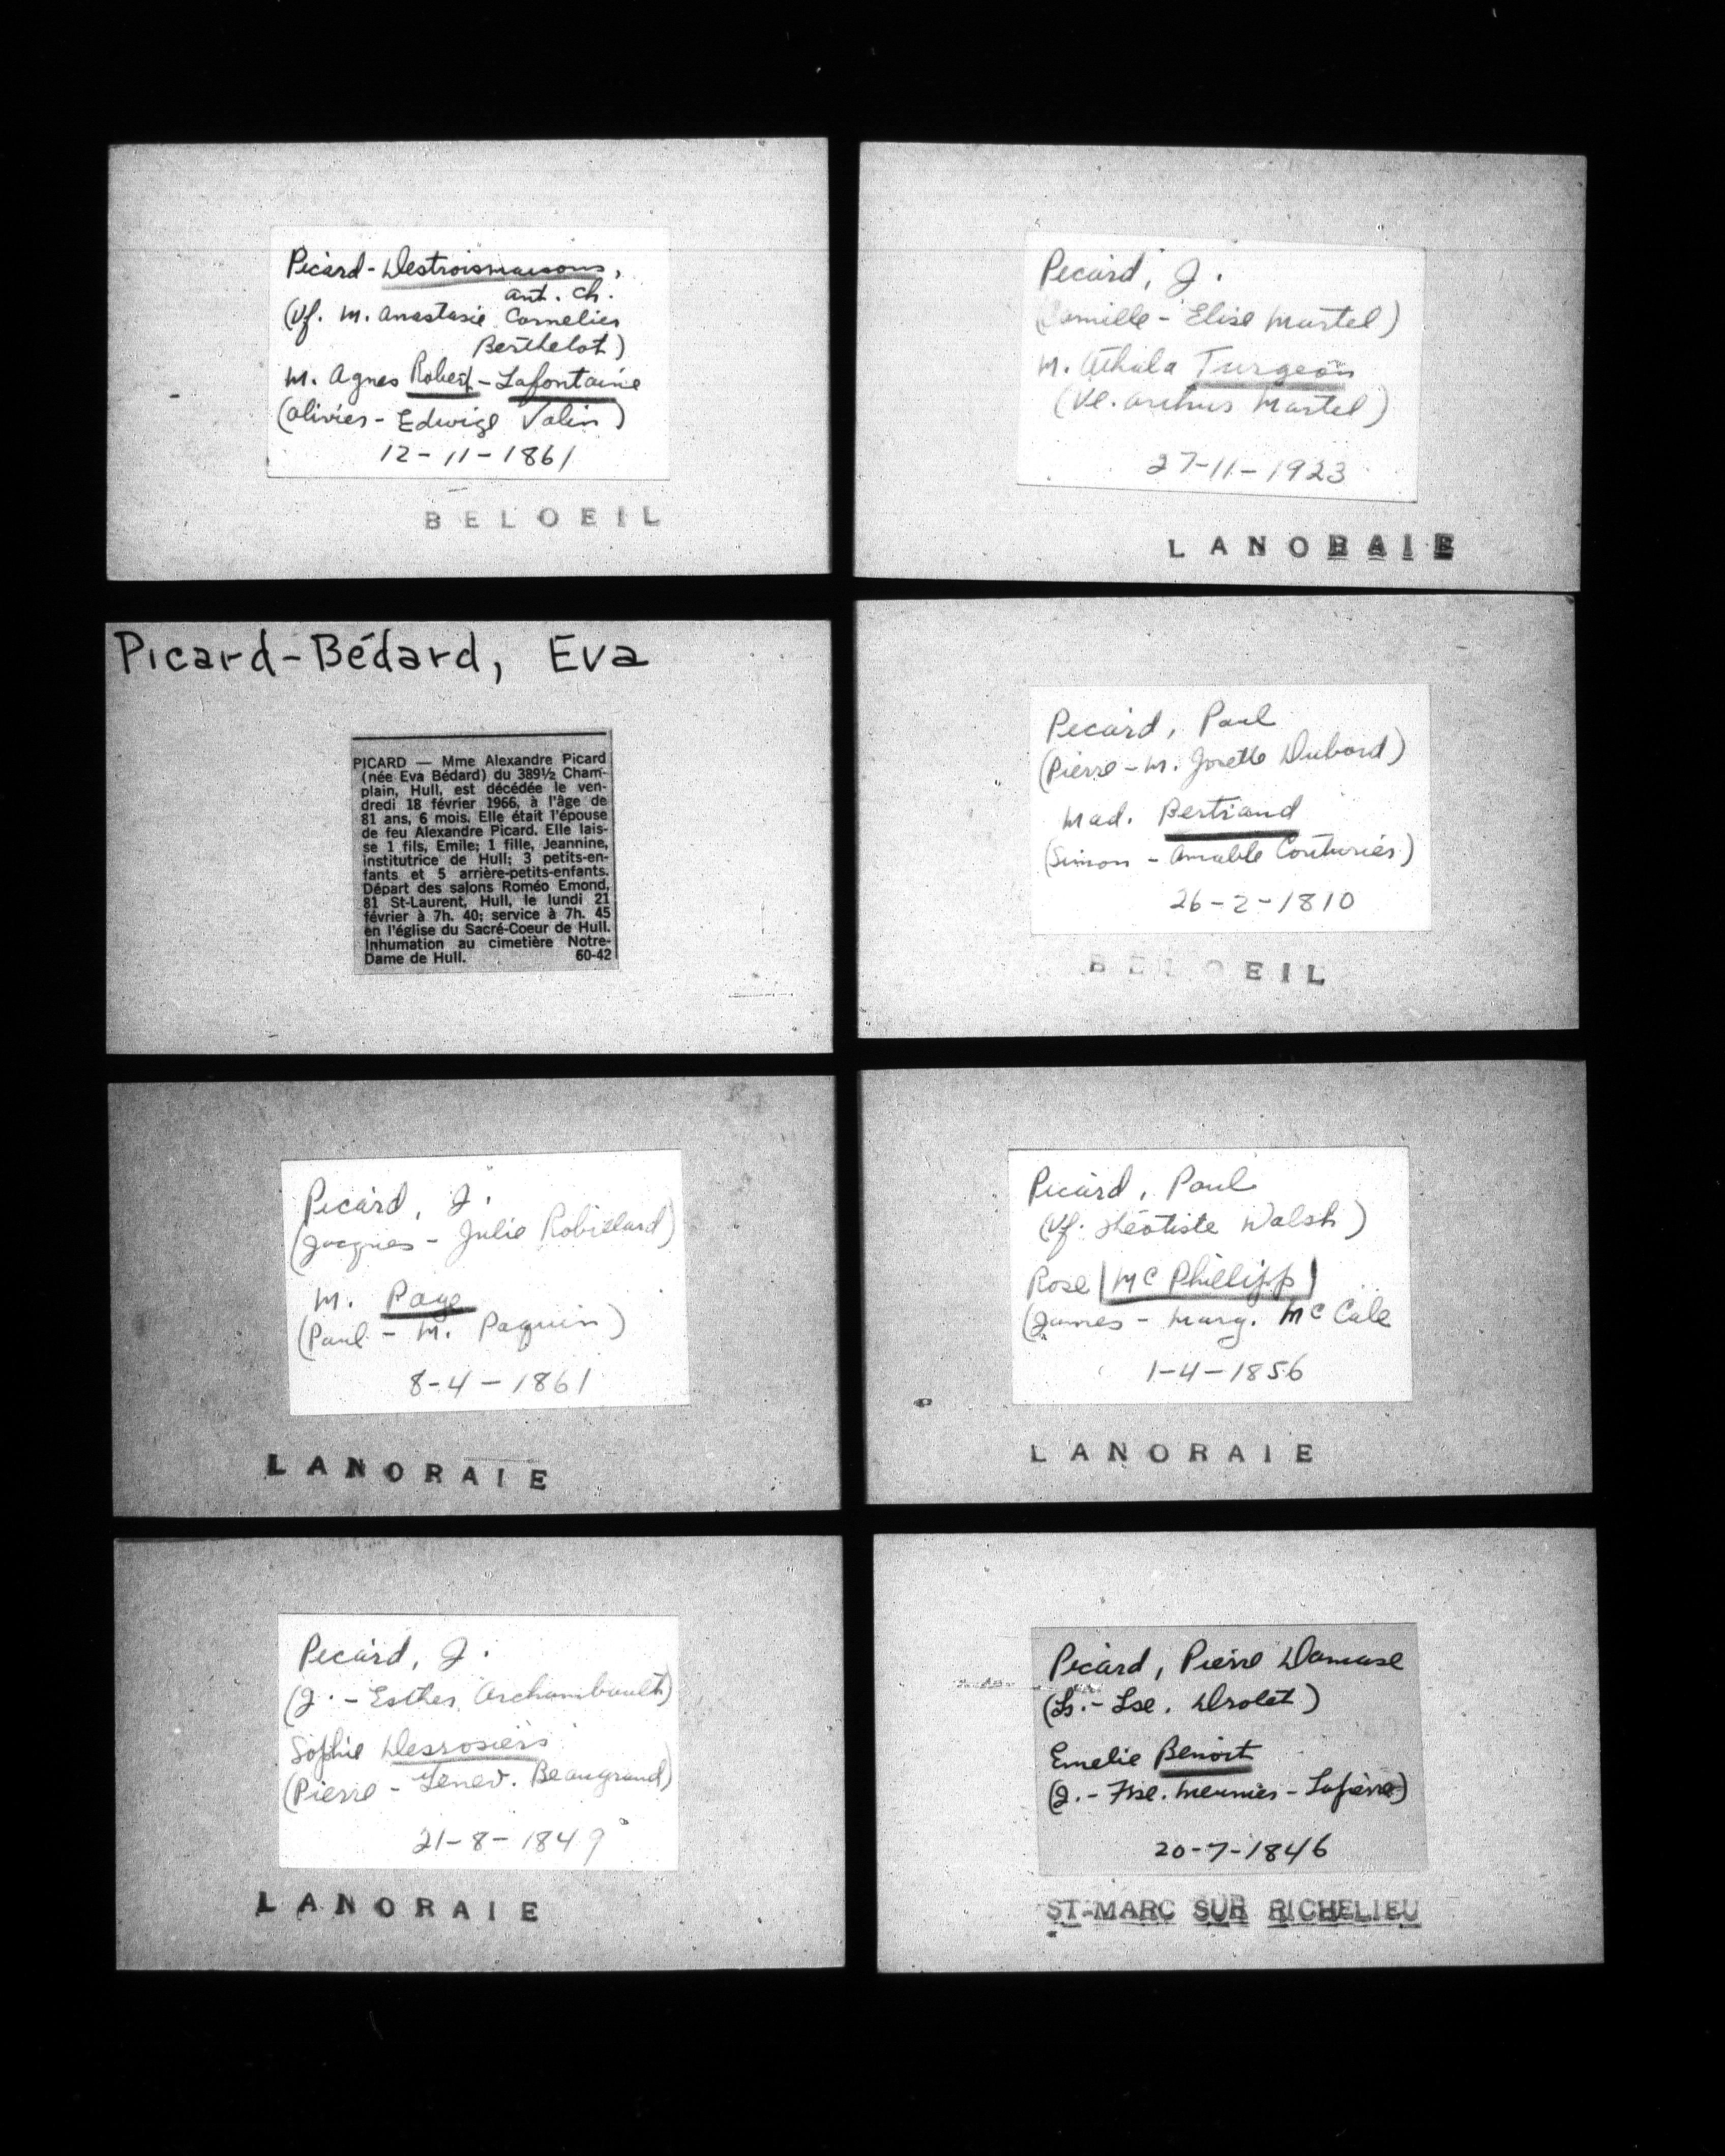 Picard-Destroismaisons,
ant. ch.
(Vf. M. Anastasie Cornelier
Berthelot)
M. Agnes Robert-Lafontaine
(Olivier - Edwige Valin)
12-11-1861
BELOEIL
Picard-Bédard, Eva
PICARD — Mme Alexandre Picard
(née Eva Bédard) du 389½ Cham-
plain, Hull, est décédée le ven-
dredi 18 février 1966, à l'âge de
81 ans, 6 mois. Elle était l'épouse
de feu Alexandre Picard. Elle lais-
se 1 fils, Emile; 1 fille, Jeannine,
institutrice de Hull; 3 petits-en-
fants et 5 arrière-petits-enfants.
Départ des salons Roméo Emond,
81 St-Laurent, Hull, le lundi 21
février à 7h. 40; service à 7h. 45
en l'église du Sacré-Coeur de Hull.
Inhumation au cimetière Notre-
Dame de Hull. 60-42
Picard, J.
(Jacques - Julie Robillard)
M. Page
(Paul - M. Paquin)
8-4-1861
LANORAIE
Picard, J.
(J. - Esther Archambault)
Sophie Desrosiers
(Pierre - Genev. Beaugrand)
21-8-1849
LANORAIE
Picard, J.
(Camille - Elise Martel)
M. Athala Turgeon
(Ve. Arthur Martel)
27-11-1923
LANORAIE
Picard, Paul
(Pierre - M. Josette Dubord)
Mad. Bertrand
(Simon - Amable Couturier)
26-2-1810
BELOEIL
Picard, Paul
(Vf. Théotiste Walsh)
Rose (McPhillipp)
(James - Marg. McCale
1-4-1856
LANORAIE
Picard, Pierre Damase
(Ls. - Lse. Drolet)
Emelie Benoit
(J. - Fse. Meunier-Lapierre)
20-7-1846
ST-MARC SUR RICHELIEU